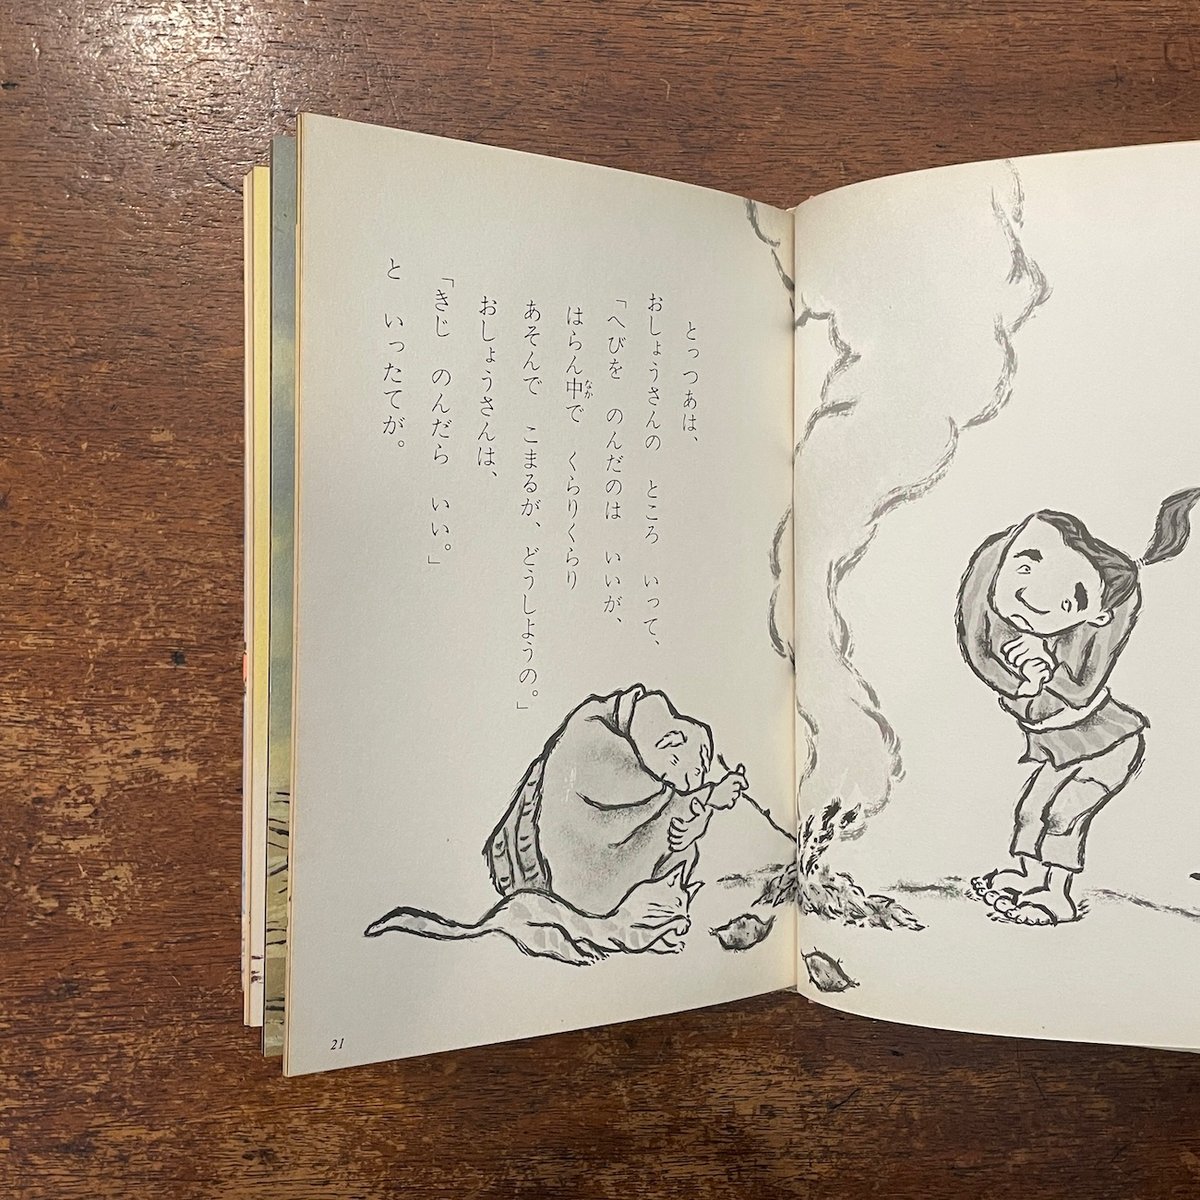 とっつあは、
おしょうさんの　ところ　いって、
「へびを　のんだのは　いいが、
はらん中で　くらりくらり
なか
あそんで　こまるが、どうしようの。」
おしょうさんは、
「きじ　のんだら　いい。」
と　いったてが。
21